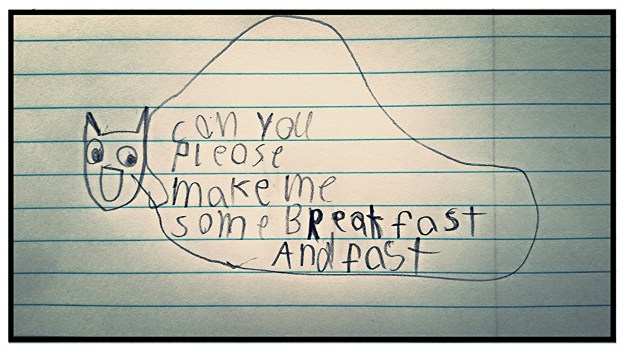 can you
please
make me
some BReakfast
And fast